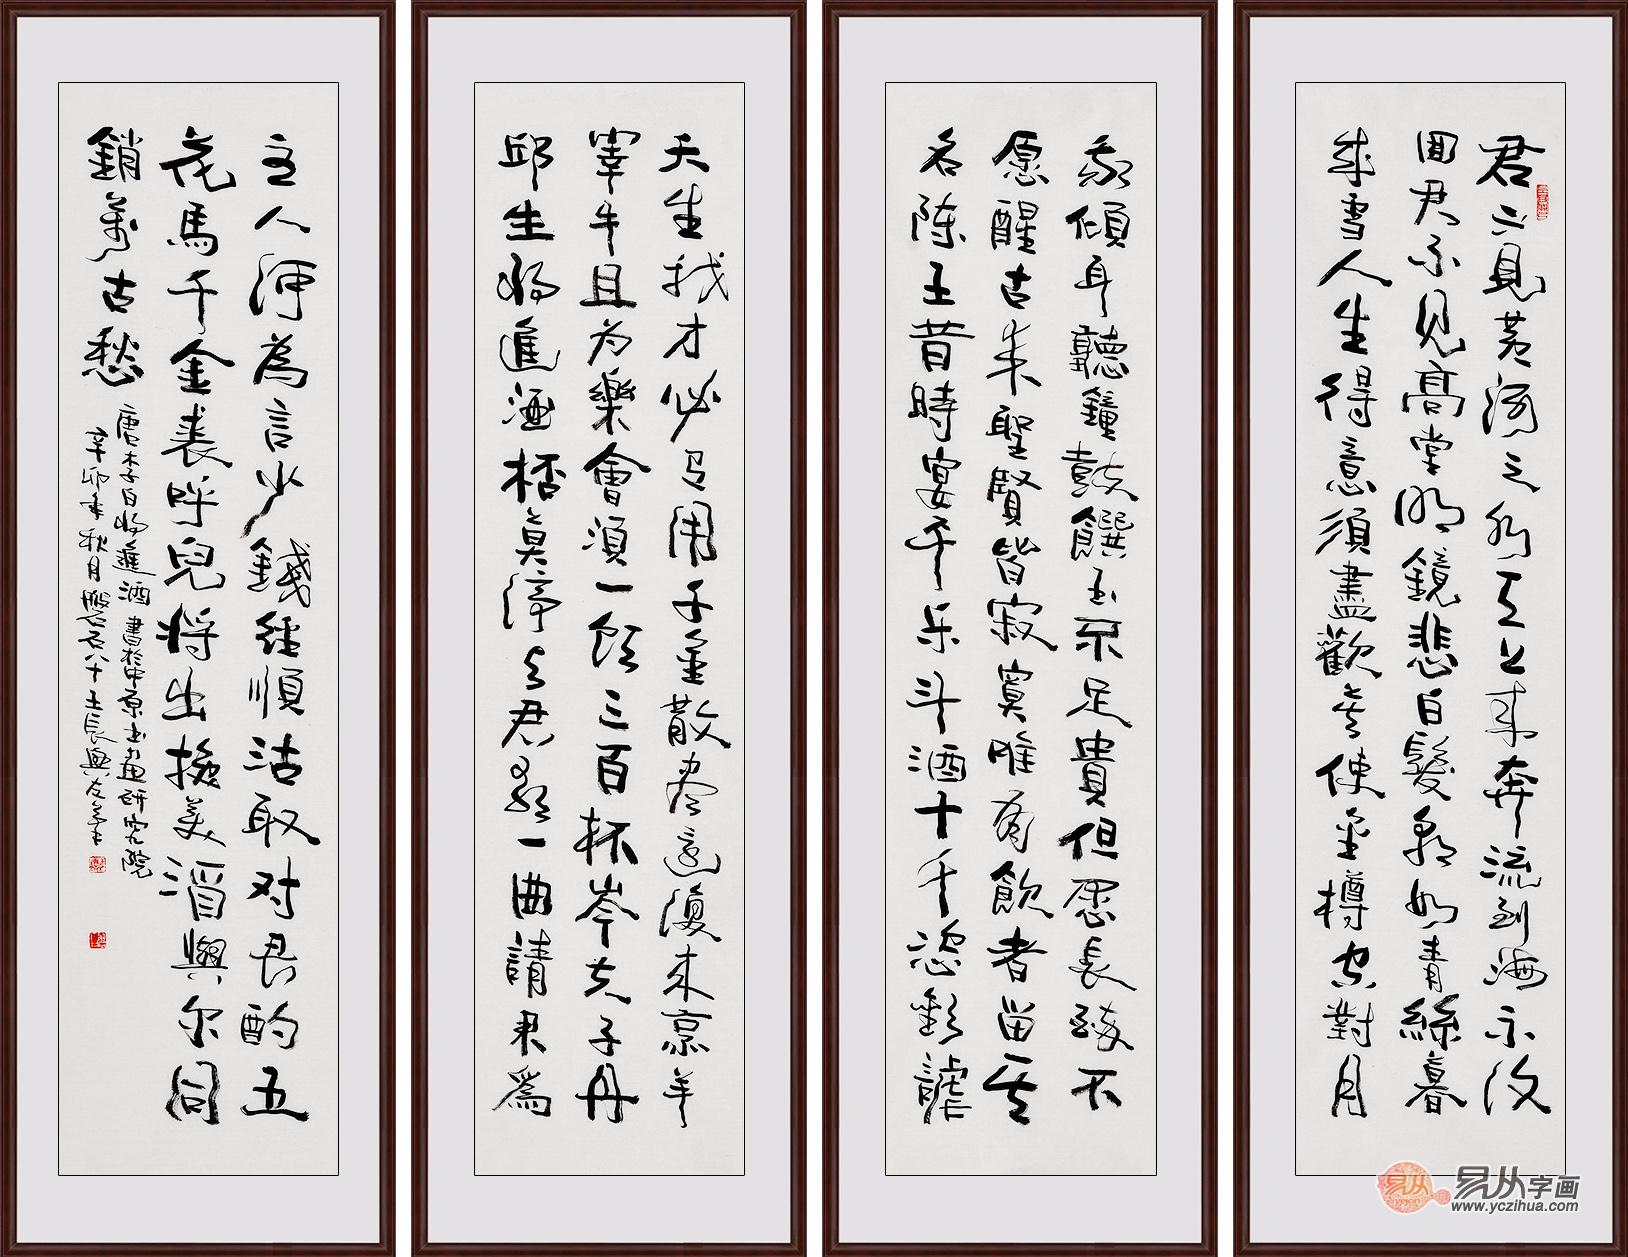 君不見黄河之水天上來奔流到海不復
回君不见高堂明鏡悲白髮朝如青絲暮
成雪人生得意須盡歡莫使金樽空對月
天生我才必有用千金散尽還復來烹羊
宰牛且为樂會須一飲三百杯岑夫子丹
邱生將進酒杯莫停与君歌一曲請君為
我傾耳聽鐘鼓饌玉不足貴但愿長醉不
愿醒古来聖賢皆寂寞唯有飲者留其
名陈王昔時宴平乐斗酒十千恣歡謔
主人何為言少錢徑須沽取对君酌五
花馬千金裘呼兒將出換美酒與尔同
銷萬古愁
唐李白將進酒 書於中原书画研究院
辛卯年秋月磐石八十
易从字画
www.yczihua.com